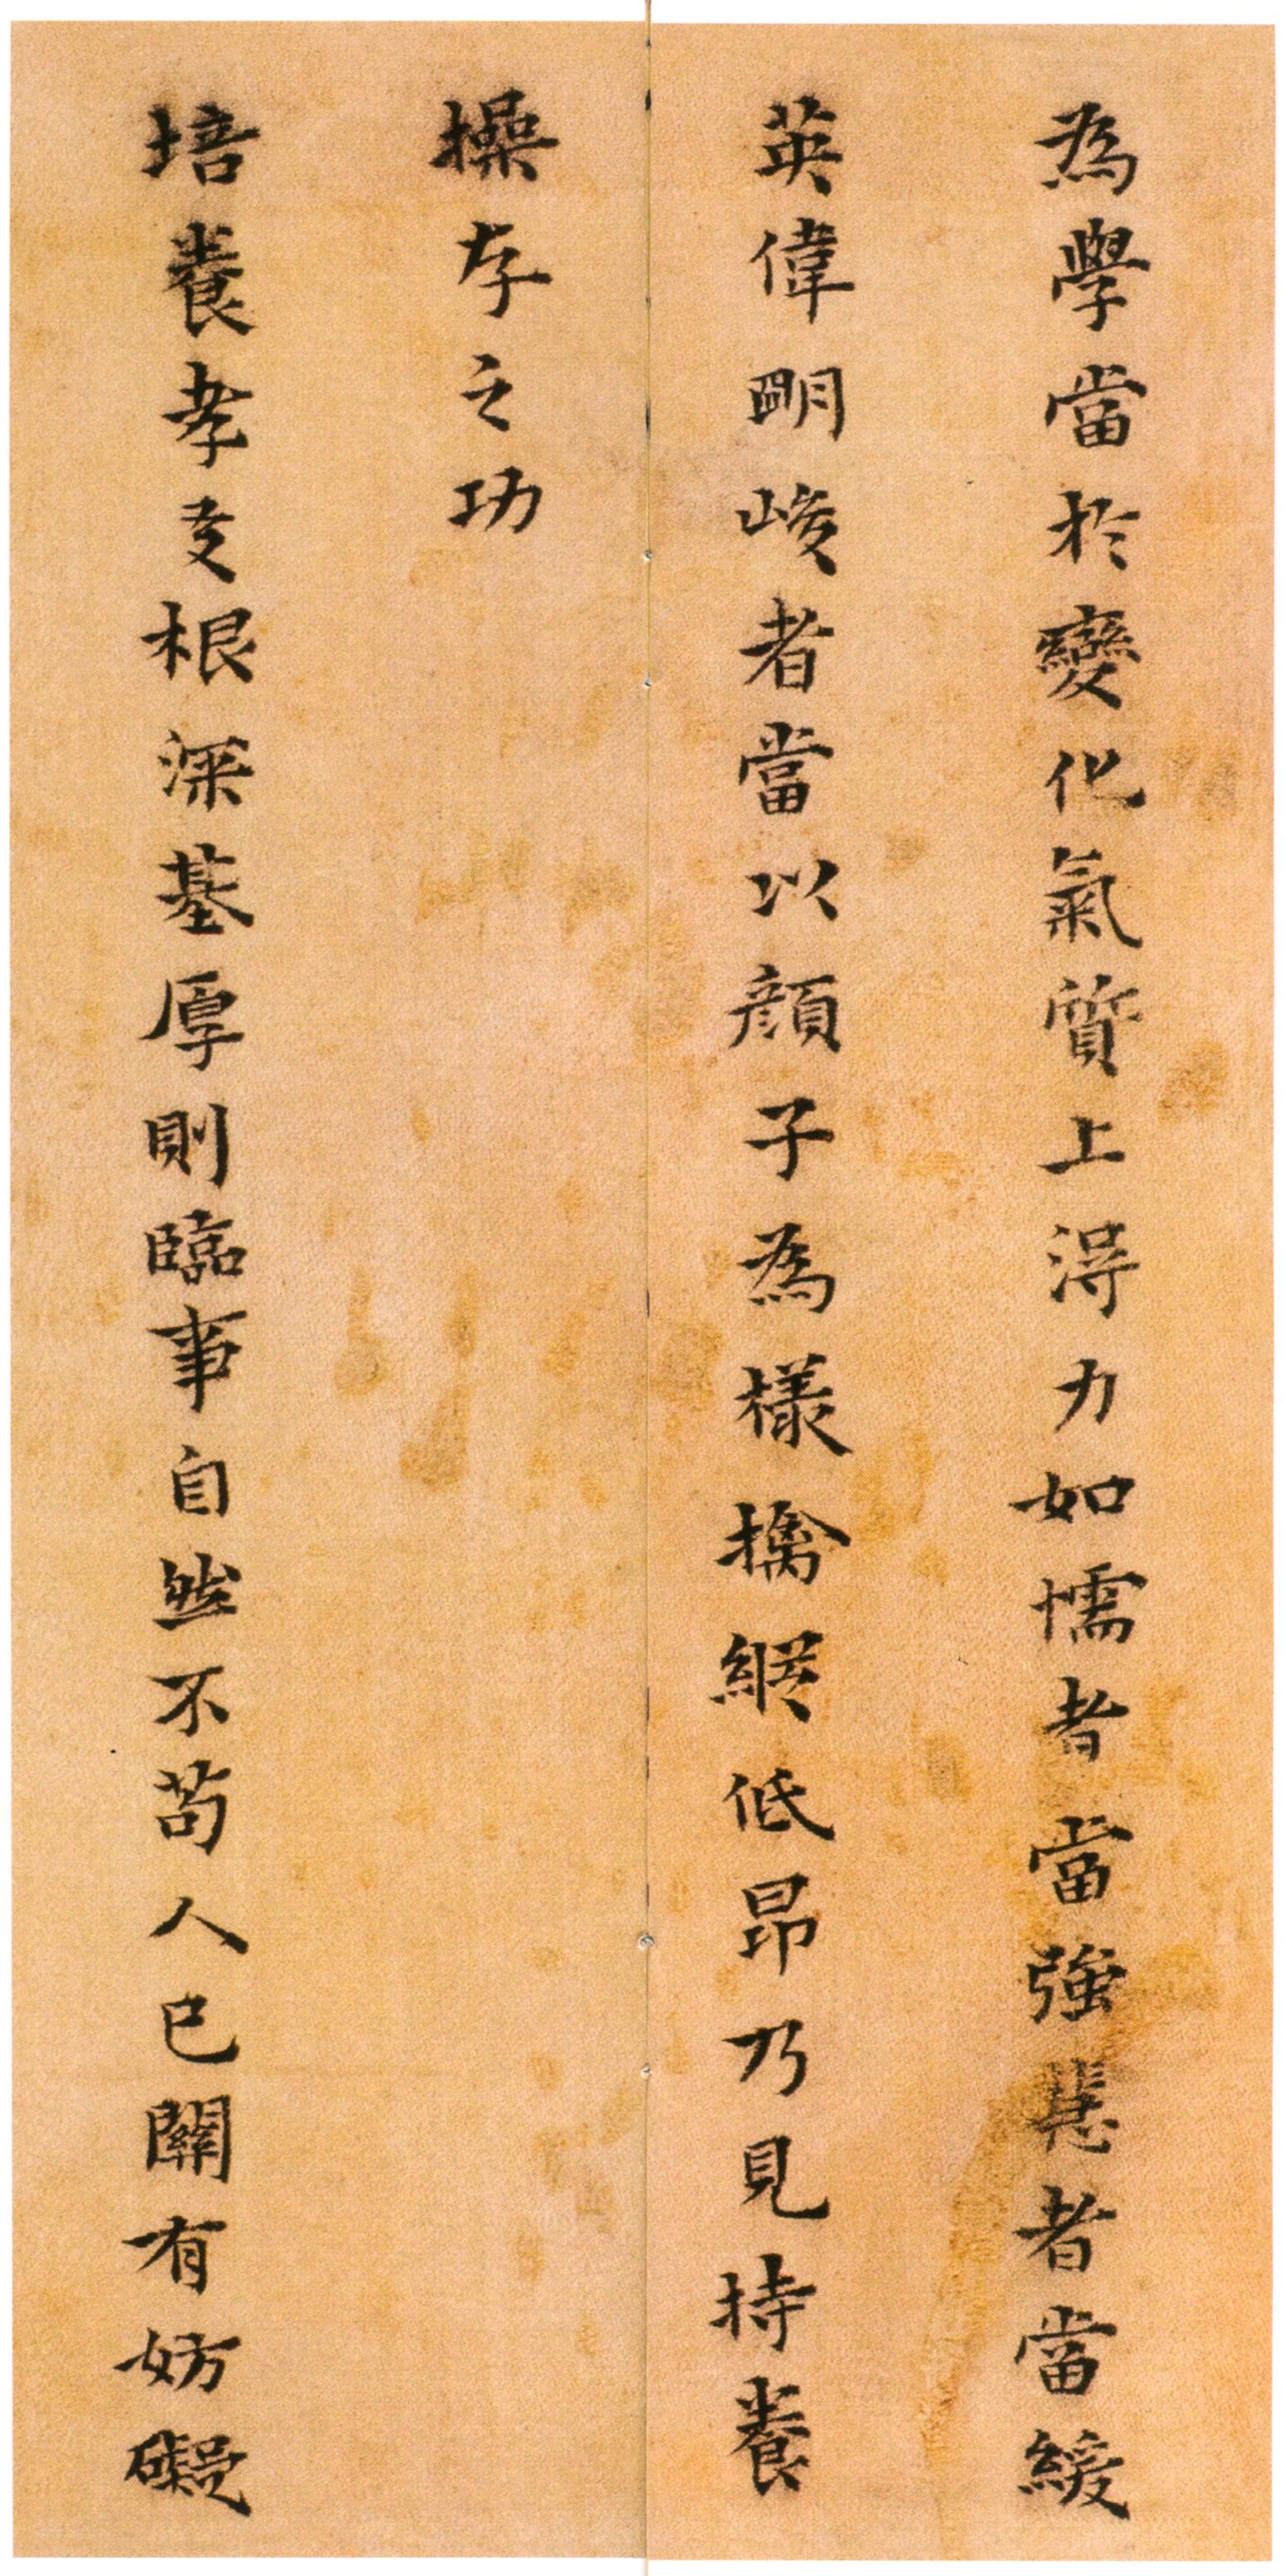 為學當於變化氣質上得力如懦者當強急者當緩
英偉朙峻者當以顏子為樣擒縱低昂乃見持養
操存之功
培養孝友根深基厚則臨事自然不苟人已關有妨礙